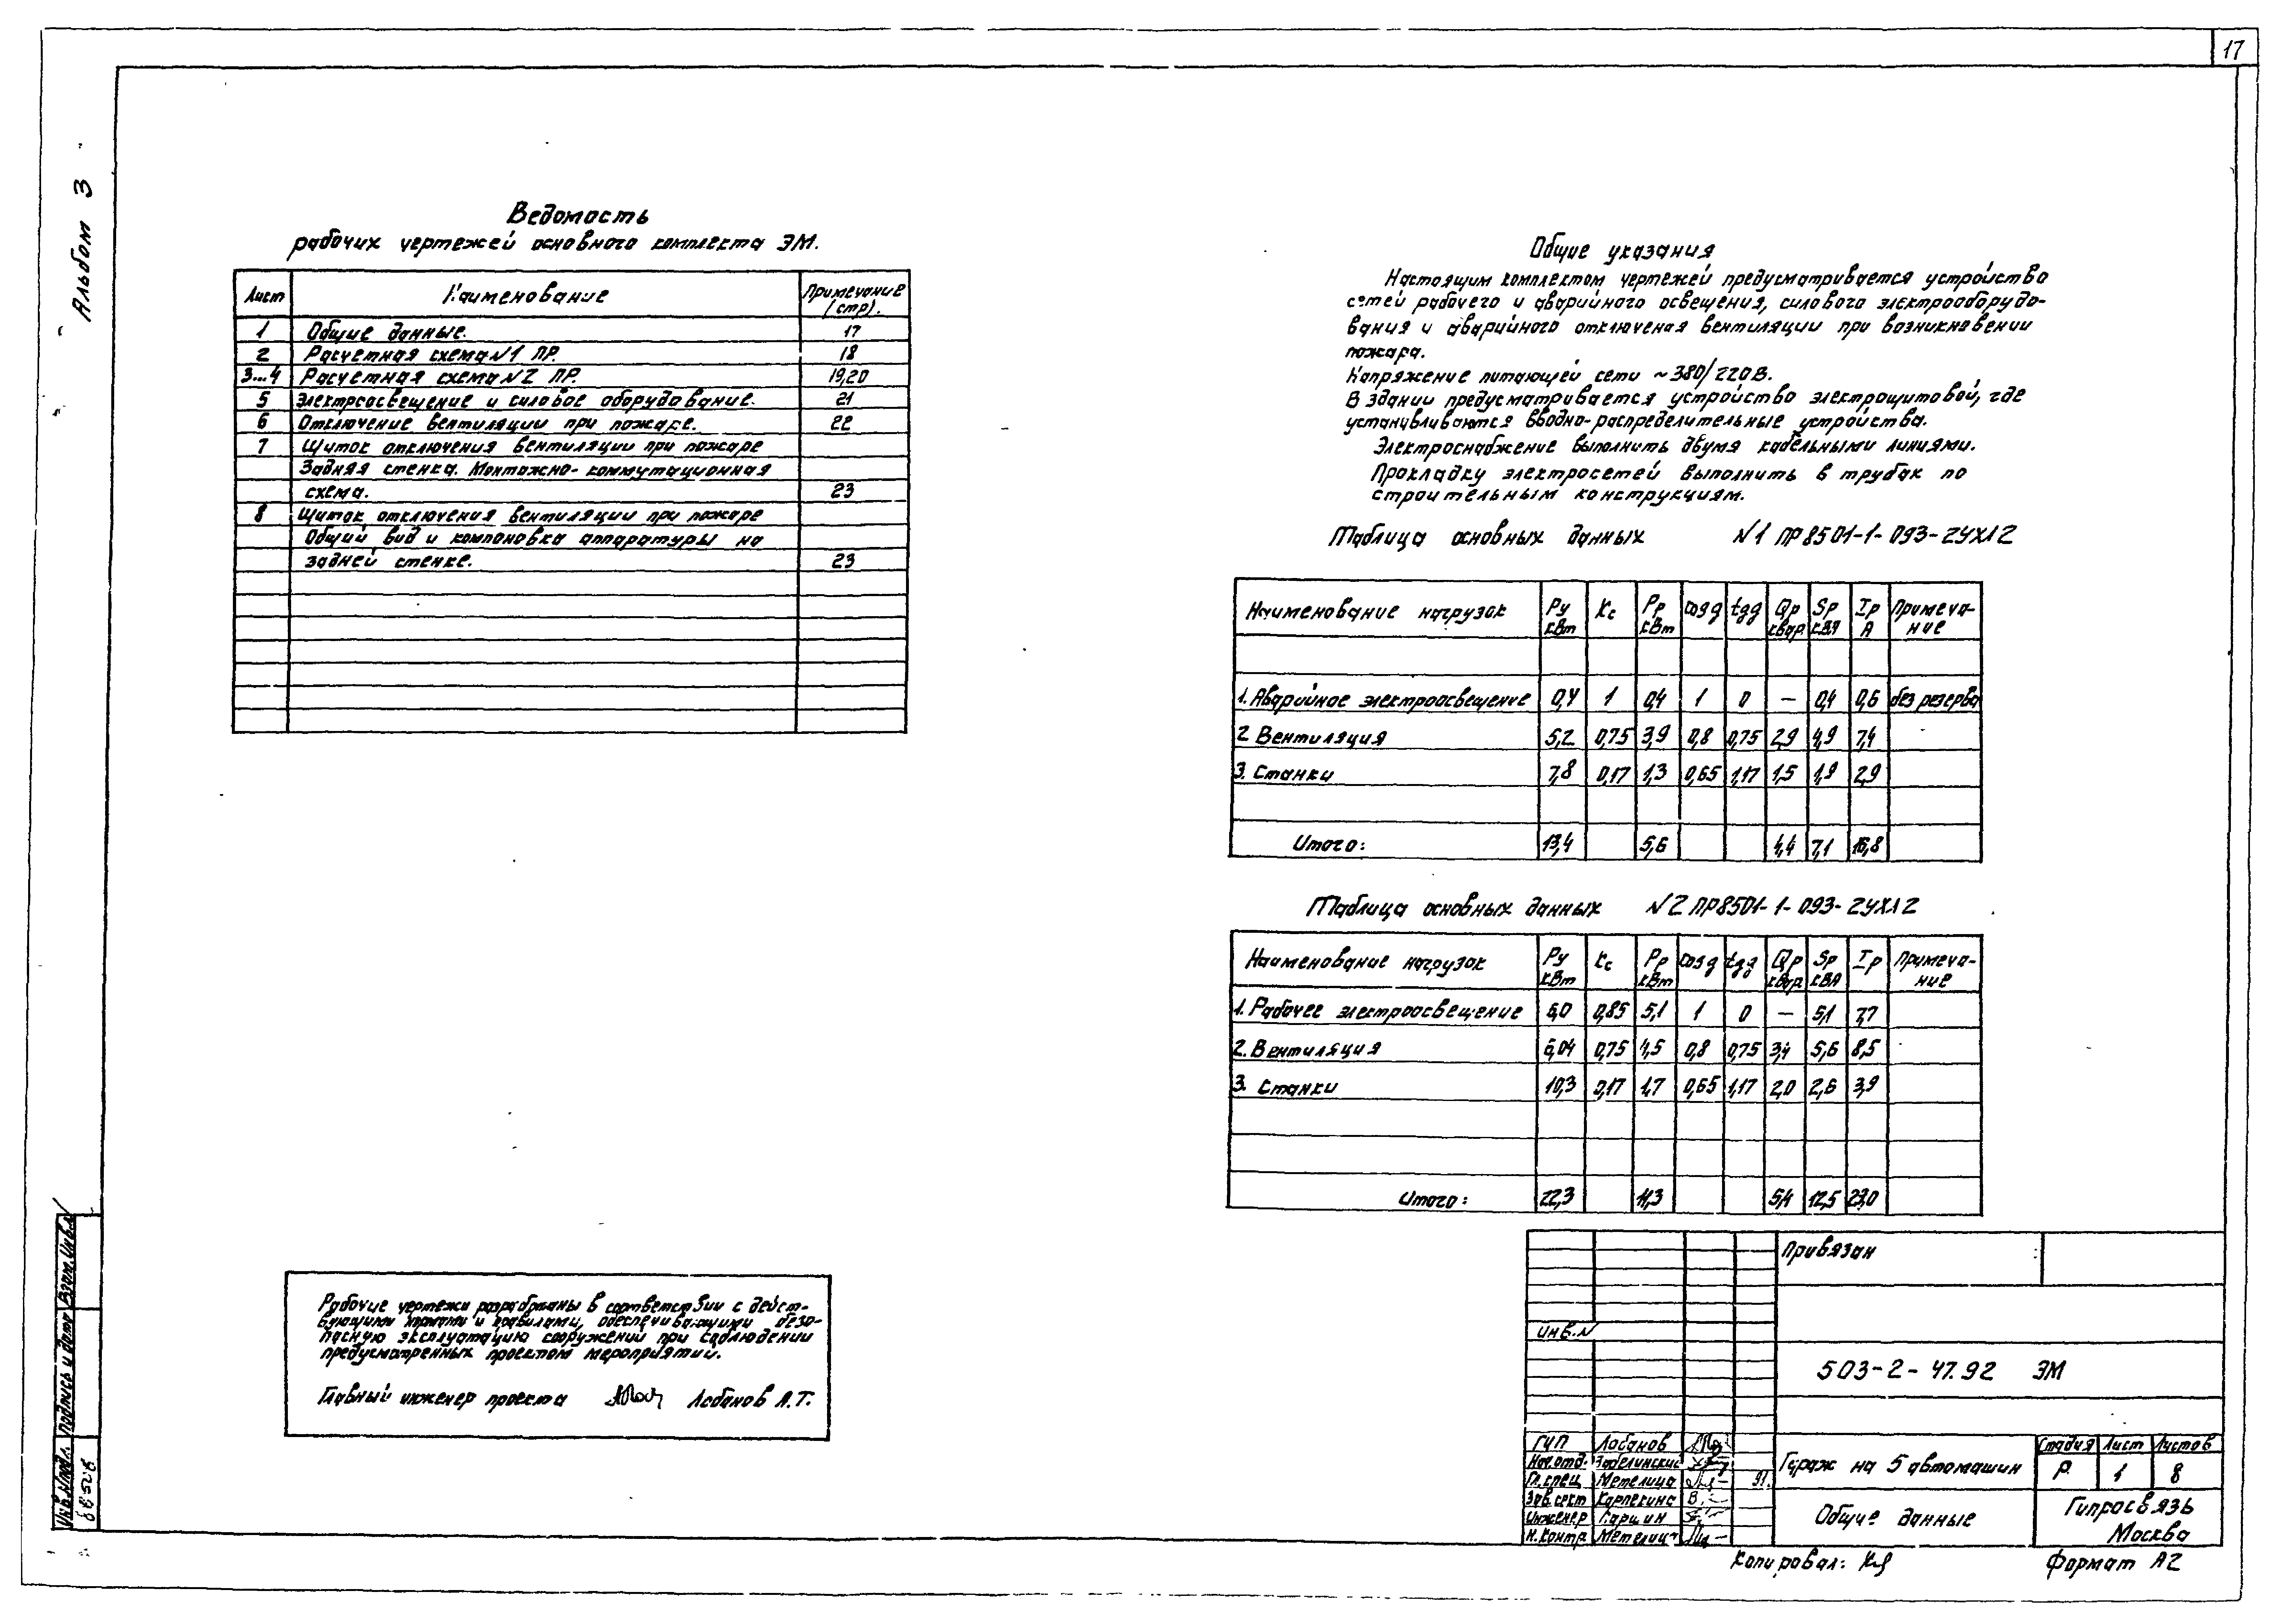 17
Альбом 3
Ведомость
рабочих чертежей основного комплекта ЭМ.
Лист Наименование Примечание (стр).
1 Общие данные. 17
2 Расчетная схема N1 ПР. 18
3...4 Расчетная схема N2 ПР. 19,20
5 Электроосвещение и силовое оборудование. 21
6 Отключение вентиляции при пожаре. 22
7 Щиток отключения вентиляции при пожаре
Задняя стенка. Монтажно-коммутационная
схема. 23
8 Щиток отключения вентиляции при пожаре
Общий вид и компоновка аппаратуры на
задней стенке. 23
Общие указания
Настоящим комплектом чертежей предусматривается устройство
сетей рабочего и аварийного освещения, силового электрооборудо-
вания и аварийного отключеная вентиляции при возникновении
пожара.
Напряжение питающей сети ~380/220В.
В здании предусматривается устройство электрощитовой, где
устанвливаются вводно-распределительные устройства.
Электроснабжение выполнить двумя кабельными линиями.
Прокладку электросетей выполнить в трубах по
строительным конструкциям.
Таблица основных данных N1 ПР8501-1-093-2УХЛ2
Наименование нагрузок Ру кВт Кс Рр кВт cosφ tgφ Qр квар Sр кВА Iр А Примеча-ние
1. Аварийное электроосвещение 0,4 1 0,4 1 0 — 0,4 0,6 без резерва
2 Вентиляция 5,2 0,75 3,9 0,8 0,75 2,9 4,9 7,4
3. Станки 7,8 0,17 1,3 0,65 1,17 1,5 1,9 2,9
Итого: 13,4 5,6 4,4 7,1
Таблица основных данных N2 ПР8501-1-093-2УХЛ2
Наименование нагрузок Ру кВт Кс Рр кВт cosφ tgφ Qр квар Sр кВА Iр Примеча-ние
1. Рабочее электроосвещение 6,0 0,85 5,1 1 0 — 5,1 7,7
2. Вентиляция 6,04 0,75 4,5 0,8 0,75 3,4 5,6 8,5
3. Станки 10,3 0,17 1,7 0,65 1,17 2,0 2,6 3,9
Итого: 22,3 11,3 5,4 12,5 23,0
Рабочие чертежи разработаны в соответствии с дейст-
вующими нормами и правилами, обеспечивающими безо-
пасную эксплуатацию сооружений при соблюдении
предусмотренных проектом мероприятий.
Главный инженер проекта Лобанов А.Т.
Привязан
инв.N
503-2-47.92 ЭМ
ГИП Лобанов
Нач.отд.
Гл.спец. Метелица 91.
Зав.сект
Инженер Гаршин
Н.контр. Метелиц
Гараж на 5 автомашин
Стадия Лист Листов
Р. 1 8
Общие данные
Гипросвязь
Москва
Копировал:
Формат А2
Взам.инв.N
Подпись и дата
Инв.Nподл.